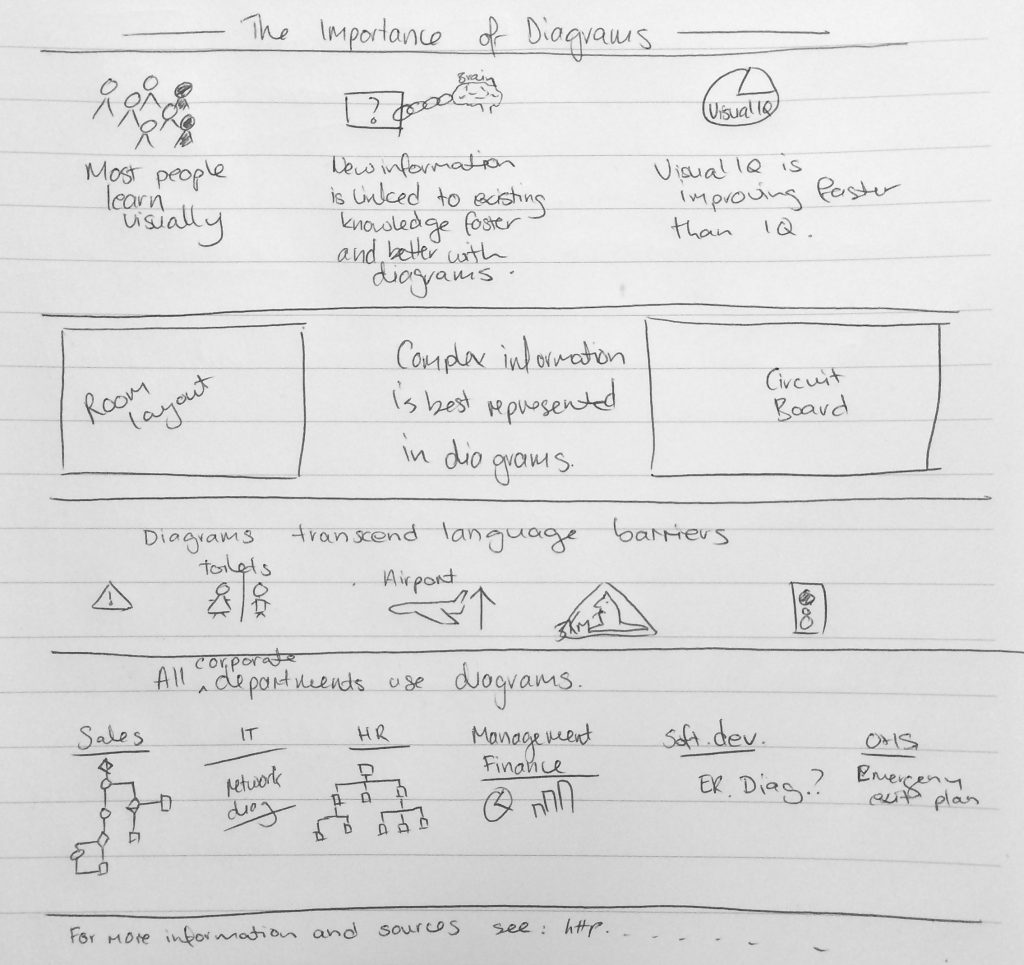 The Importance of Diagrams
Most people
learn
visually
?
Brain
New information
is linked to existing
knowledge faster
and better with
diagrams.
Visual IQ
Visual IQ is
improving faster
than IQ.
Room
layout
Complex information
is best represented
in diagrams.
Circuit
Board
Diagrams transcend language barriers
!
toilets
Airport
3KM
All corporate departments use diagrams.
Sales
IT
Network
diag
HR
Management
Finance
Soft. dev.
ER. Diag.?
OHS
Emergeny
exit plan
For more information and sources see: http. . . . . . .